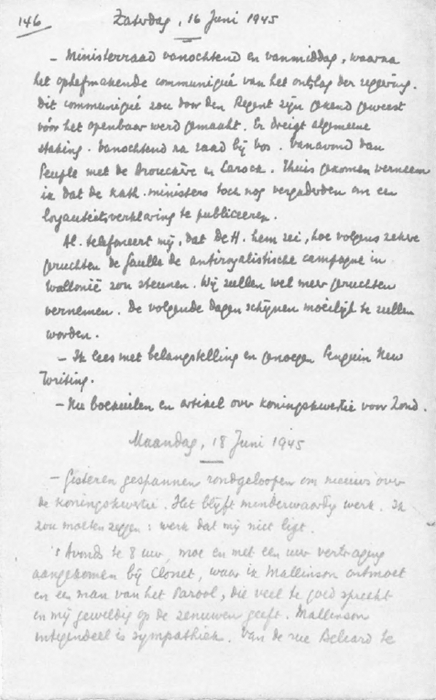 146 Zaterdag, 16 Juni 1945
- Ministerraad vanochtend en vanmiddag, waarna
het ophefmakende communiqué van het ontslag der regering.
Dit communiqué zou door den Regent zijn gekend geweest
vóór het openbaar werd gemaakt. Er dreigt algemene
staking. Vanochtend na raad bij Vos. Vanavond van
Peuple met de Brouckère en Larock. Thuis gekomen verneem
ik dat de kath. ministers toch nog vergaderden om een
loyauteitsverklaring te publiceeren.
H. telefoneert mij, dat de H. hem zei, hoe volgens zekere
geruchten de Gaulle de antiroyalistische campagne in
Wallonië zou steunen. Wij zullen wel meer geruchten
vernemen. De volgende dagen schijnen moeilijk te zullen
worden.
- Ik lees met belangstelling en genoegen Penguin New
Writing.
- Nu boekuilen en artikel over koningskwestie voor Zond.
Maandag, 18 Juni 1945
- Gisteren gespannen rondgeloopen om nieuws over
de koningskwestie. Het blijft minderwaardig werk. Ik
zou moeten zeggen: werk dat mij niet ligt.
's Avonds te 8 uur, moe en met een uur vertraging
aangekomen bij Closset, waar ik Mallinson ontmoet
en een man van het Parool, die veel te goed spreekt
en mij geweldig op de zenuwen geeft. Mallinson
integendeel is sympathiek. Van de rue Béliard te